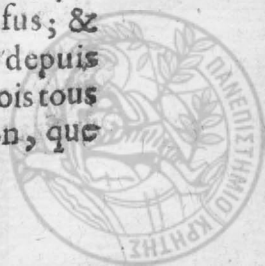 fus; &
depuis
ois tous
n, que
ΠΑΝΕΠΙΣΤΗΜΙΟ ΚΡΗΤΗΣ